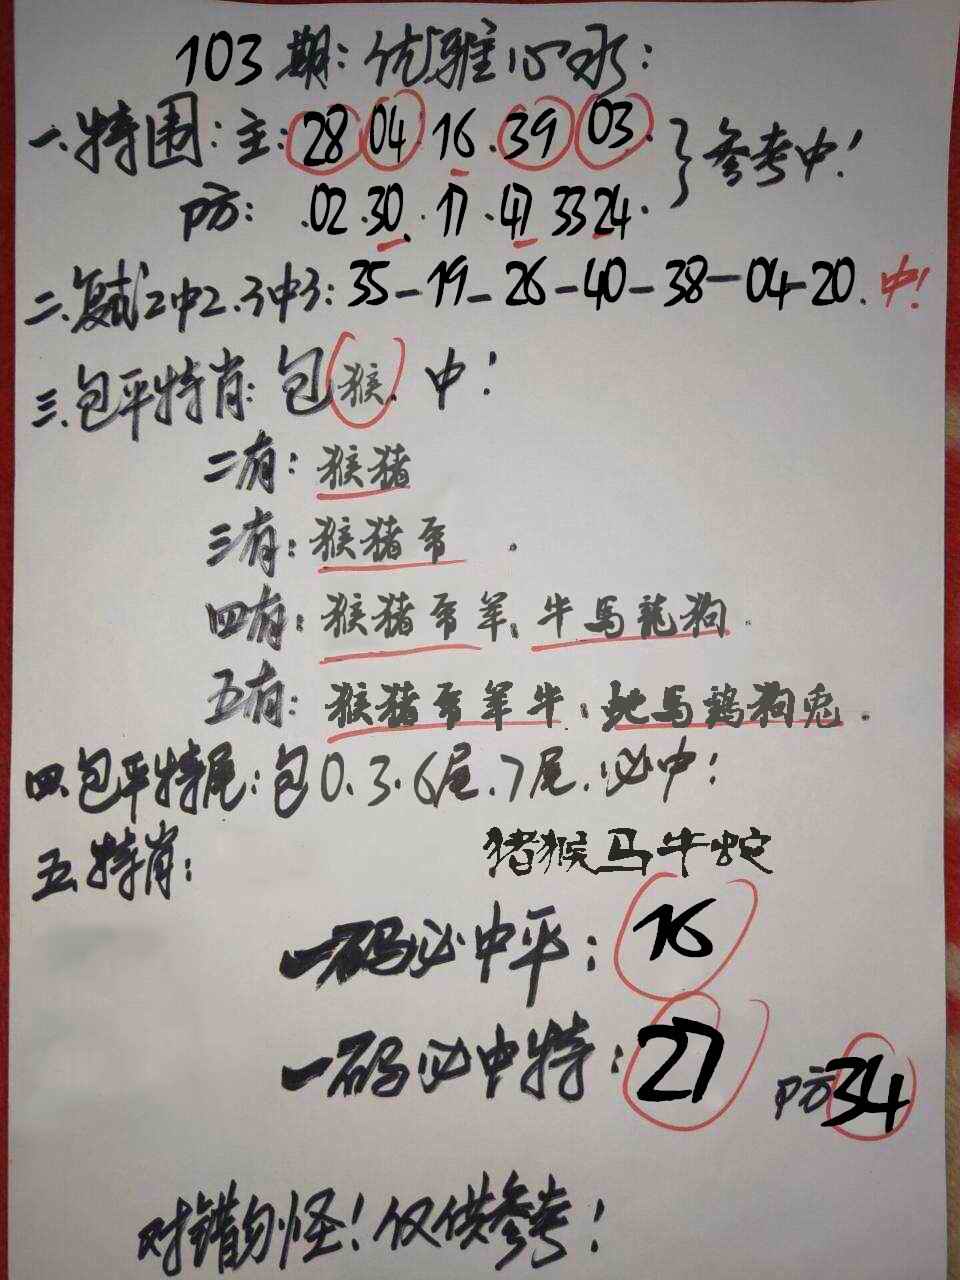 103期:优雅心水:
一.特围:主:28 04 16.39 03.
防: .02.30.17.47 33 24. }参考中!
二.复式2中2.3中3:35-19-26-40-38-04-20.中!
三.包平特肖:包猴.中!
二有:猴猪
三有:猴猪帝.
四有:猴猪帝羊,牛馬龍狗.
五有:猴猪帝羊牛:地馬鷄狗兎.
四.包平特尾:包0.3.6尾.7尾.必中!
五.特肖: 猪猴马牛蛇
一码必中平:16
一码必中特:27 防34
对错勿怪!仅供参考!